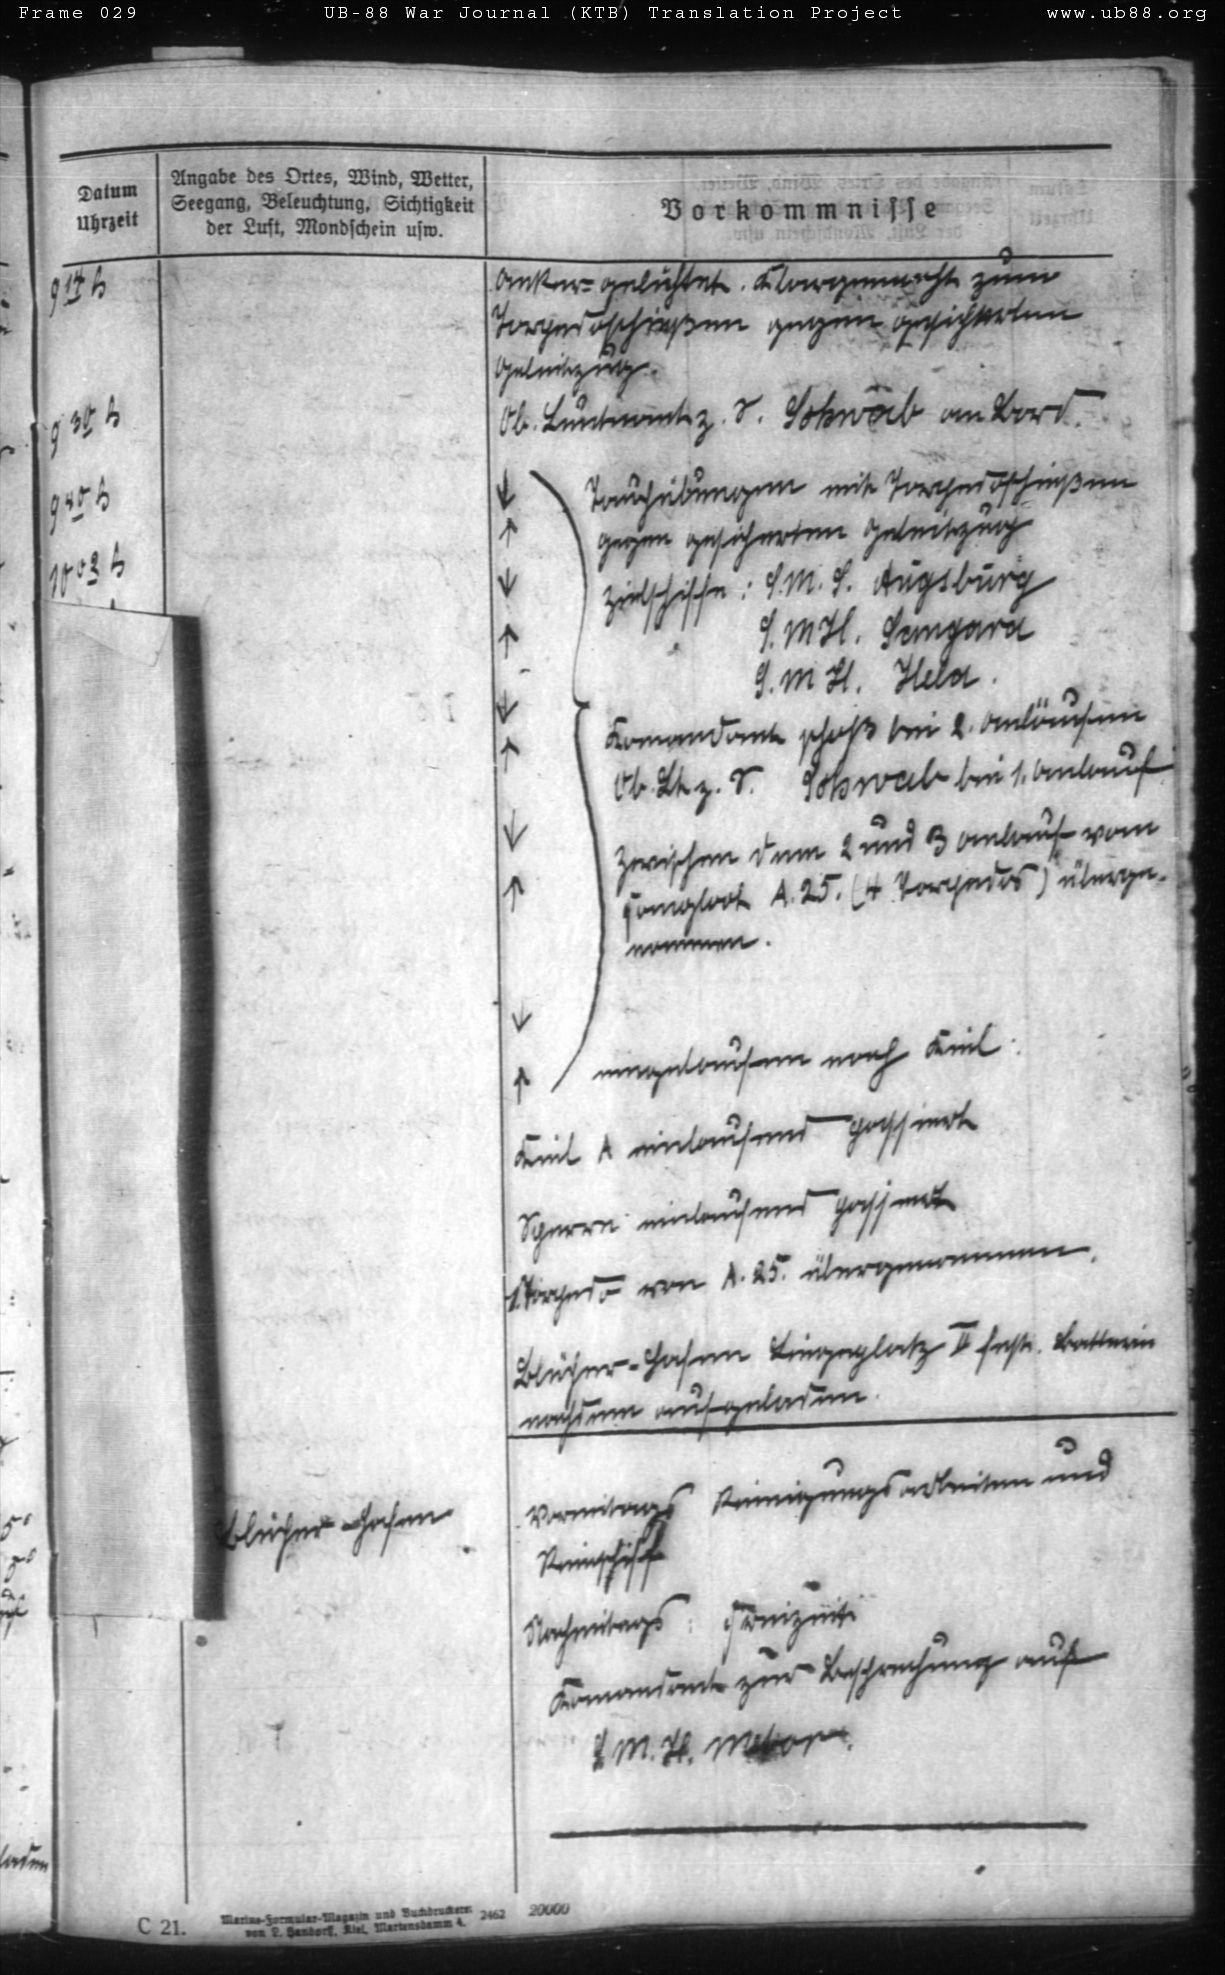 Frame 029 UB-88 War Journal (KTB) Translation Project www.ub88.org
Datum
Uhrzeit
Angabe des Ortes, Wind, Wetter,
Seegang, Beleuchtung, Sichtigkeit
der Luft, Mondschein usw.
Vorkommnisse
9 14 h
Anker gelichtet. Klargemacht zum
Torpedoschießen gegen gesicherten
Geleitzug.
9 30 h
Ob. Leutnant z. S. Schwab an Bord.
9 40 h
↓ Tauchübungen mit Torpedoschießen
↑ gegen gesicherten Geleitzug
10 03 h
↓ Zielschiffe: S.M.S. Augsburg
↑ S.M.H. Sangara
S.M.H. Hela.
↓ Komandant schoß bei 2. Anläufen
↑ Ob. Lt. z. S. Schwab bei 1. Anlauf
↓ Zwischen dem 2 und 3 Anlauf vom
↑ A.25. (4 Torpedos) überge-
nommen.
↓
↑ eingelaufen nach Kiel.
Kiel A einlaufend passiert
Sperre einlaufend passiert
1 Torpedo von A.25. übergenommen.
Blücher-Hafen Liegeplatz II fest. Batterie
nachdem aufgeladen.
Blücher-Hafen
Vormitags Reinigungsarbeiten und
Reinschiff
Nachmitags: Freizeit
Komandant zur Besprechung auf
S.M.H. Meteor.
C 21.
Marine-Formular-Magazin und Buchdruckerei
von L. Handorff, Kiel, Martensdamm 4.
2462 20000